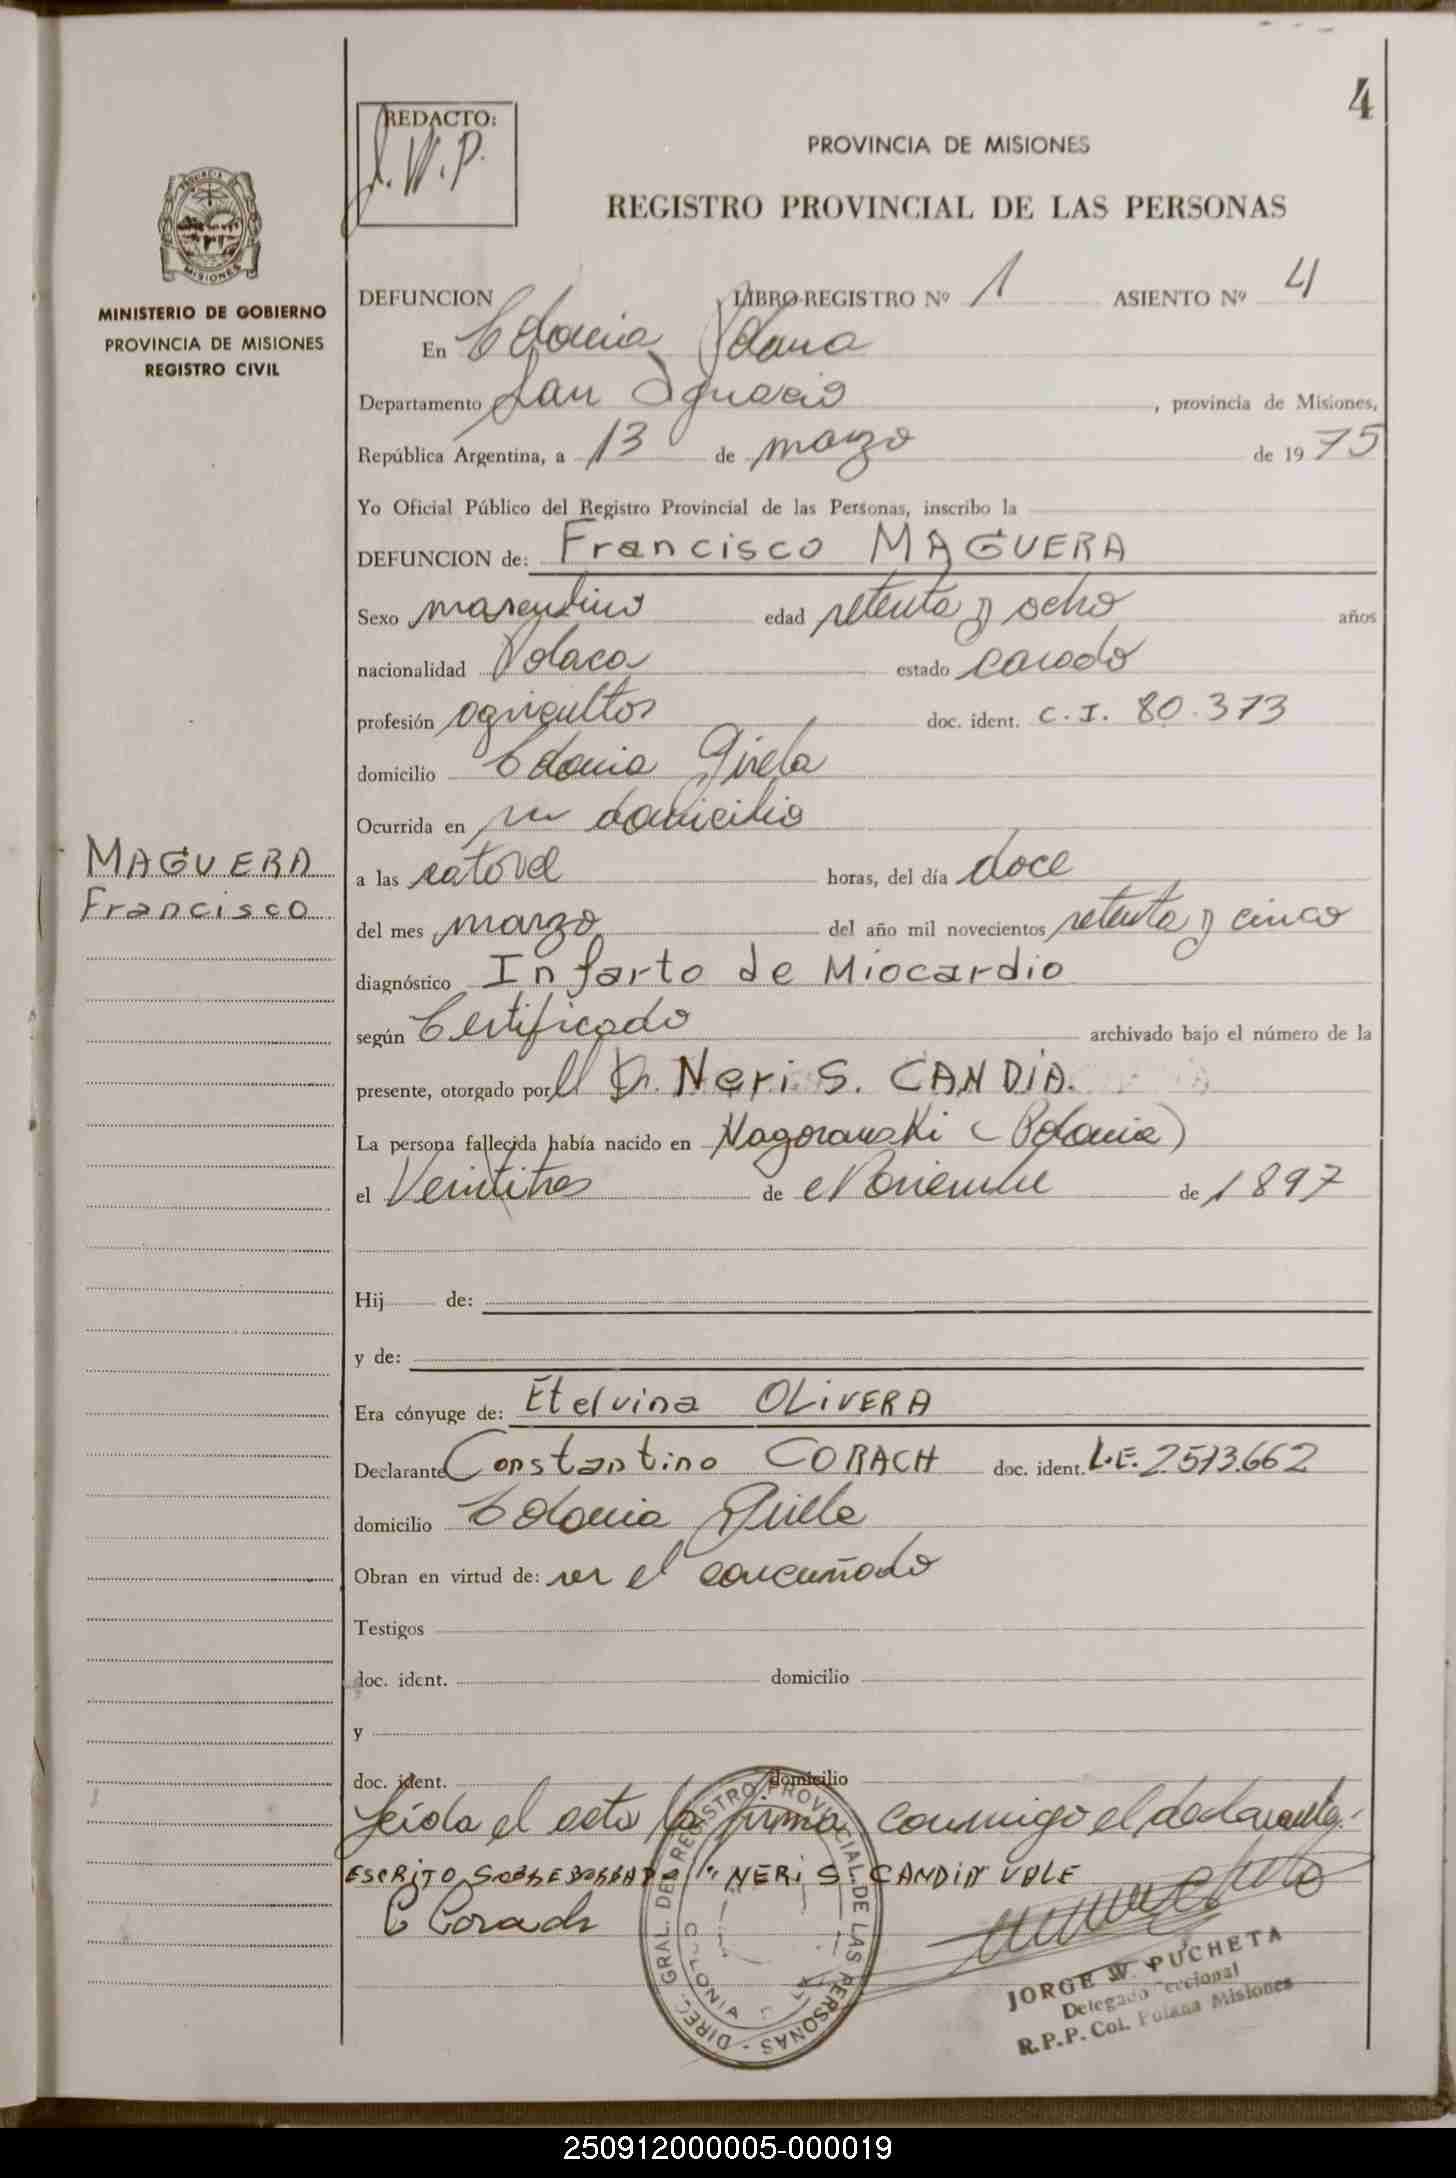 4
REDACTO:
J.W.P.
PROVINCIA DE MISIONES
REGISTRO PROVINCIAL DE LAS PERSONAS
MISIONES
MINISTERIO DE GOBIERNO
PROVINCIA DE MISIONES
REGISTRO CIVIL
DEFUNCION LIBRO-REGISTRO Nº 1 ASIENTO Nº 4
En Colonia Polana
Departamento San Ignacio, provincia de Misiones,
República Argentina, a 13 de marzo de 1975
Yo Oficial Público del Registro Provincial de las Personas, inscribo la
DEFUNCION de: Francisco MAGUERA
Sexo masculino edad setenta y ocho años
nacionalidad Polaca estado casado
profesión agricultor doc. ident. C.I. 80.373
domicilio Colonia
Ocurrida en su domicilio
MAGUERA
Francisco
a las catorce horas, del día doce
del mes marzo del año mil novecientos setenta y cinco
diagnóstico Infarto de Miocardio
según Certificado archivado bajo el número de la
presente, otorgado por el Dr. Neri S. CANDIA.
La persona fallecida había nacido en (Polonia)
el Veintitres de Noviembre de 1897
Hij de:
y de:
Era cónyuge de: Etelvina OLIVERA
Declarante Constantino CORACH doc. ident. L.E. 2.513.662
domicilio Colonia
Obran en virtud de: ser el concuñado
Testigos
doc. ident. domicilio
y
doc. ident. domicilio
Leída el acta la firma conmigo el declarante.
ESCRITO SOBREBORRADO "NERI S CANDIA VALE
C Corach
DIREC. GRAL. DEL REGISTRO PROVINCIAL DE LAS PERSONAS -
COLONIA
JORGE W. PUCHETA
Delegado Seccional
R.P.P. Col. Polana Misiones
250912000005-000019